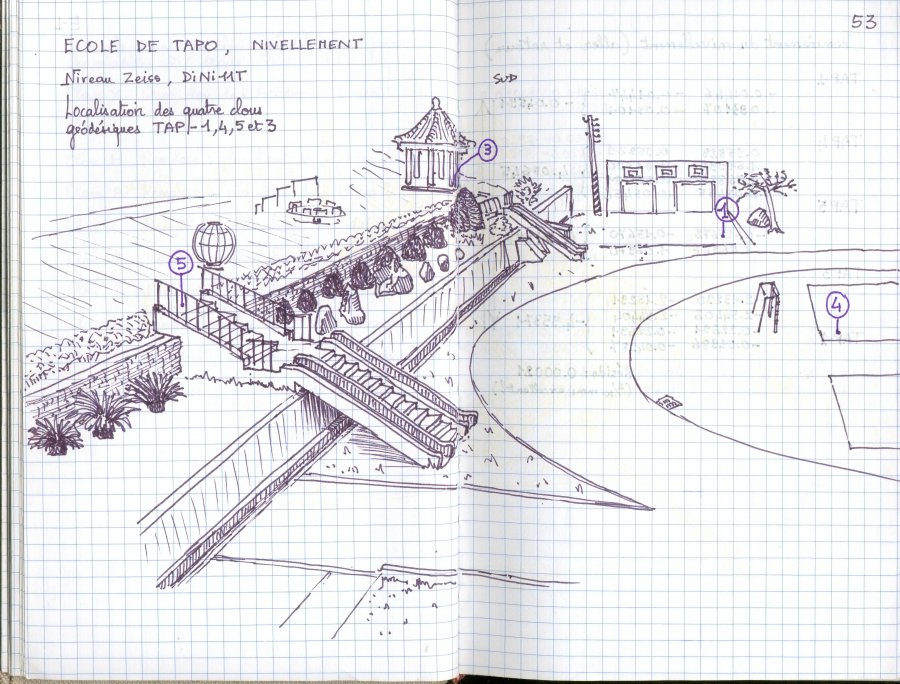 53
ECOLE DE TAPO, NIVELLEMENT
Niveau Zeiss, DiNi 11T
Localisation des quatre clous
géodésiques TAP-1, 4, 5 et 3
SUD
3
1
5
4